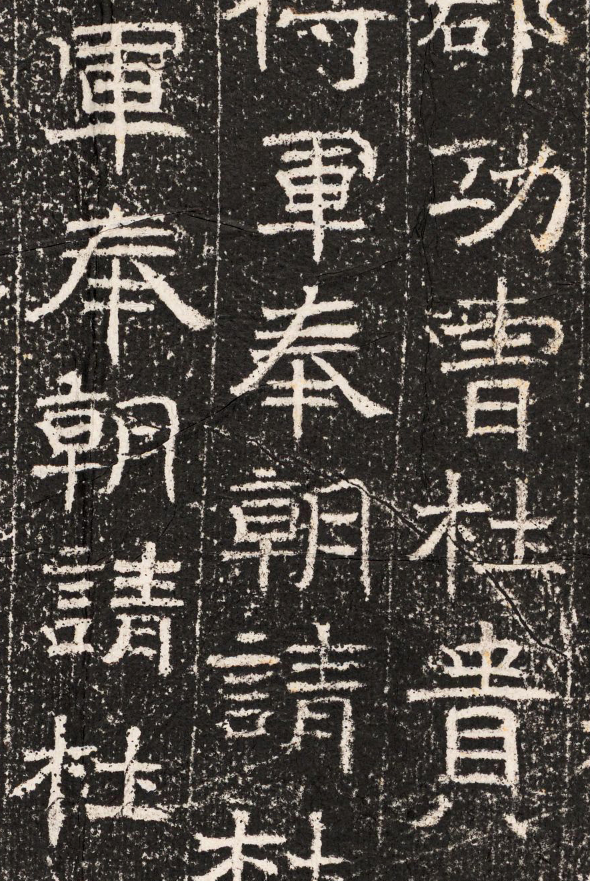 郡功曹杜貴
軍奉朝請杜
軍奉朝請杜